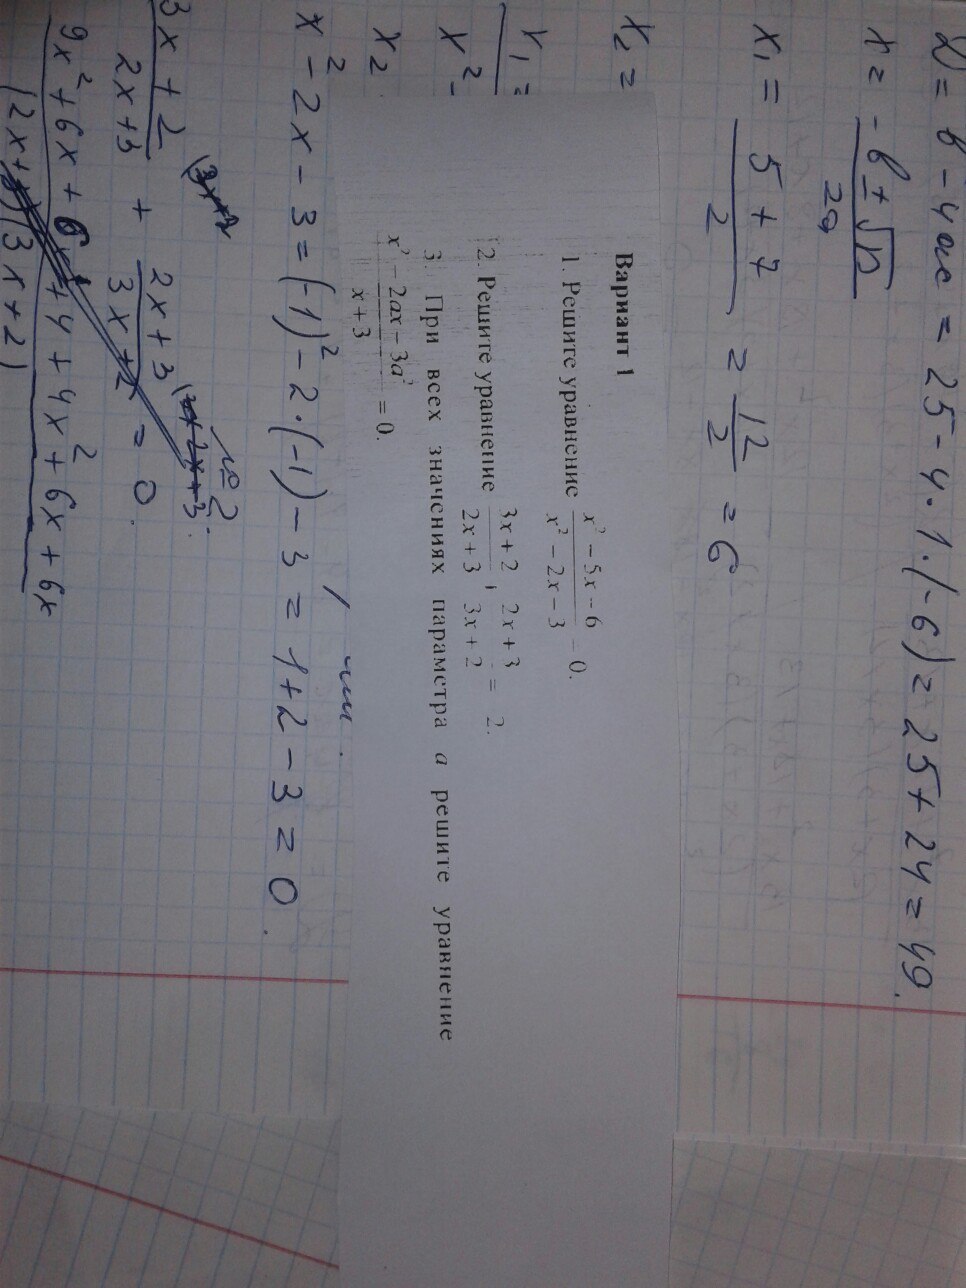 D = в - 4ac = 25 - 4 · 1 · (-6) = 25 + 24 = 49.
x = -в ± √D / 2a
x₁ = 5 + 7 / 2 = 12 / 2 = 6
x₂ =
x₁ =
x² -
x₂
Вариант 1
1. Решите уравнение x² - 5x - 6 / x² - 2x - 3 = 0.
2. Решите уравнение 3x + 2 / 2x + 3 + 2x + 3 / 3x + 2 = 2.
3. При всех значениях параметра a решите уравнение
x² - 2ax - 3a² / x + 3 = 0.
x² - 2x - 3 = (-1)² - 2·(-1) - 3 = 1 + 2 - 3 = 0.
№2
3x + 2 / 2x + 3 + 2x + 3 / 3x + 2 = 0.
9x² + 6x + 6x + 4 + 4x² + 6x + 6x
(2x+3)(3x+2)